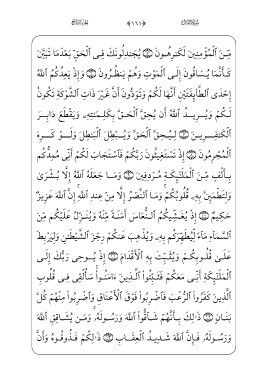 ﴿١٦١﴾
مِّنَ ٱلْمُؤْمِنِينَ لَكَٰرِهُونَ ۝ يُجَٰدِلُونَكَ فِى ٱلْحَقِّ بَعْدَمَا تَبَيَّنَ
كَأَنَّمَا يُسَاقُونَ إِلَى ٱلْمَوْتِ وَهُمْ يَنظُرُونَ ۝ وَإِذْ يَعِدُكُمُ ٱللَّهُ
إِحْدَى ٱلطَّآئِفَتَيْنِ أَنَّهَا لَكُمْ وَتَوَدُّونَ أَنَّ غَيْرَ ذَاتِ ٱلشَّوْكَةِ تَكُونُ
لَكُمْ وَيُرِيدُ ٱللَّهُ أَن يُحِقَّ ٱلْحَقَّ بِكَلِمَٰتِهِۦ وَيَقْطَعَ دَابِرَ
ٱلْكَٰفِرِينَ ۝ لِيُحِقَّ ٱلْحَقَّ وَيُبْطِلَ ٱلْبَٰطِلَ وَلَوْ كَرِهَ
ٱلْمُجْرِمُونَ ۝ إِذْ تَسْتَغِيثُونَ رَبَّكُمْ فَٱسْتَجَابَ لَكُمْ أَنِّى مُمِدُّكُم
بِأَلْفٍ مِّنَ ٱلْمَلَٰٓئِكَةِ مُرْدِفِينَ ۝ وَمَا جَعَلَهُ ٱللَّهُ إِلَّا بُشْرَىٰ
وَلِتَطْمَئِنَّ بِهِۦ قُلُوبُكُمْ وَمَا ٱلنَّصْرُ إِلَّا مِنْ عِندِ ٱللَّهِ إِنَّ ٱللَّهَ عَزِيزٌ
حَكِيمٌ ۝ إِذْ يُغَشِّيكُمُ ٱلنُّعَاسَ أَمَنَةً مِّنْهُ وَيُنَزِّلُ عَلَيْكُم مِّنَ
ٱلسَّمَآءِ مَآءً لِّيُطَهِّرَكُم بِهِۦ وَيُذْهِبَ عَنكُمْ رِجْزَ ٱلشَّيْطَٰنِ وَلِيَرْبِطَ
عَلَىٰ قُلُوبِكُمْ وَيُثَبِّتَ بِهِ ٱلْأَقْدَامَ ۝ إِذْ يُوحِى رَبُّكَ إِلَى
ٱلْمَلَٰٓئِكَةِ أَنِّى مَعَكُمْ فَثَبِّتُوا۟ ٱلَّذِينَ ءَامَنُوا۟ سَأُلْقِى فِى قُلُوبِ
ٱلَّذِينَ كَفَرُوا۟ ٱلرُّعْبَ فَٱضْرِبُوا۟ فَوْقَ ٱلْأَعْنَاقِ وَٱضْرِبُوا۟ مِنْهُمْ كُلَّ
بَنَانٍ ۝ ذَٰلِكَ بِأَنَّهُمْ شَآقُّوا۟ ٱللَّهَ وَرَسُولَهُۥ وَمَن يُشَاقِقِ ٱللَّهَ
وَرَسُولَهُۥ فَإِنَّ ٱللَّهَ شَدِيدُ ٱلْعِقَابِ ۝ ذَٰلِكُمْ فَذُوقُوهُ وَأَنَّ